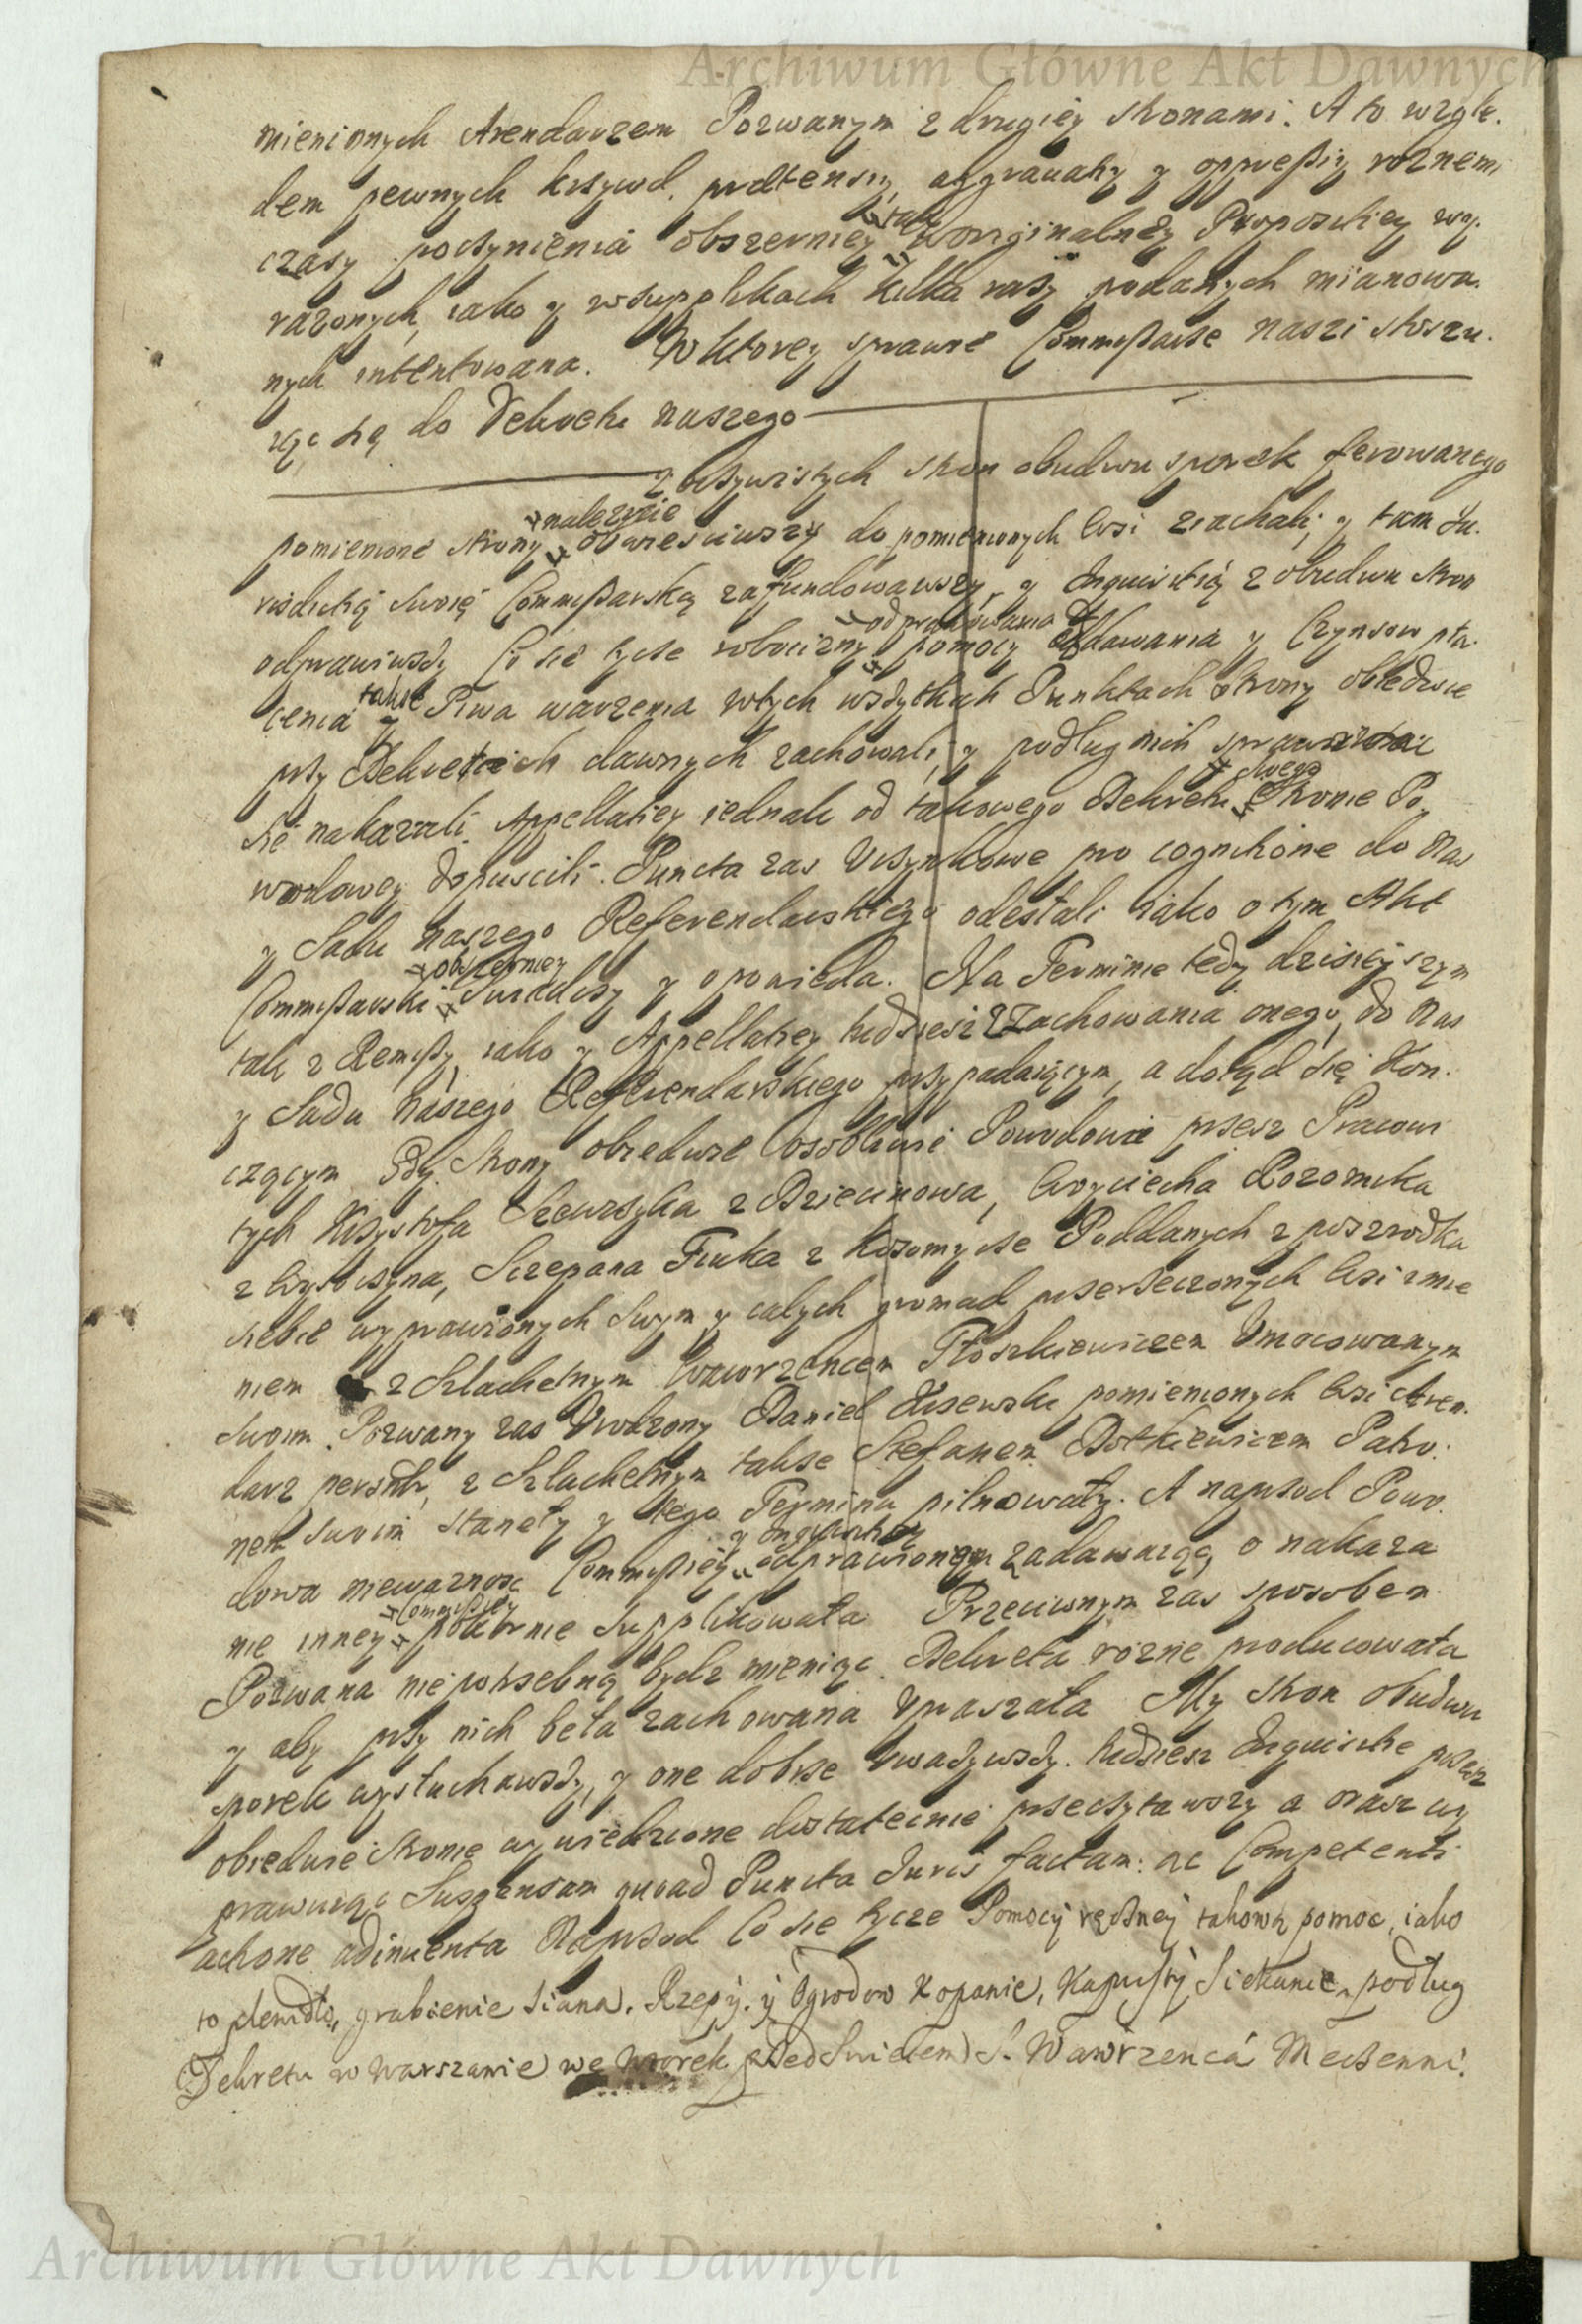 Archiwum Główne Akt Dawnych
mienionych Arendarzem Pozwanym z drugiey stronami. A to wzglę.
dem pewnych krzywd, praetensiy, aggrauaty y oppreßiy roznemi
czasy poczynienia obszerniey tak w originalney Propositiey wy.
razonych, iako y w supplikach kilka razy podanych mianowa.
nych intentowana. W ktorey sprawie Commißarze naszi stoszu.
iąc się do Dekretu naszego
z oczywistych stron obudwu sporek ferowanego
pomienione strony należycie obwiesciwszy do pomienionych Wsi ziachali, y tam Iu.
risdictią swoię Commißarską zafundowawszy, y Inquisitią z obudwu stron
odprawiwszy Co się tycze robocizny odprawowania pomocy oddawania y Czynszow pła.
cenia także y Piwa warzenia w tych wszytkich Punktach Strony obiedwie
przy Dekretach dawnych zachowali, y podług nich sprawować
się nakazali. Appellatiey iednak od takowego Dekretu swego Stronie Po.
wodowey dopuscili. Puncta zas Uczynkowe pro cognitione do Nas
y Sądu naszego Referendarskiego odesłali iako o tym Akt
Commißarski obszerniey swiadczy y opowieda. Na Terminie tedy dzisieyszym
tak z Remißy, iako y Appellatiey tudziesz Zachowania onego, do Nas
y Sądu naszego Referendarskiego przypadaiącym, a dotąd się kon.
czącym. Gdy Strony obiedwie osobliwie Powodowie przez Pracowi
tych Krzysztofa z Dziecinowa, Woyciecha
z Wysoczyna, Szczepana z Kosomycze Poddanych z poszrodka
siebie wyprawionych swym y całych gromad przerzeczonych Wsi imie
niem z Szlachetnym Wawrzencem Płoszkiewiczem Umocowanym
swoim. Pozwany zas Urodzony Daniel pomienionych Wsi Aren.
darz z Szlachetnym także Stefanem Patro.
nem swoim staneły y tego Terminu pilnowały. A naprzod Powo.
dowa niewaznosc Commißiey y Inquisitiey odprawioney zadawaiąc, o nakaza
nie inney Commißiey pokornie supplikowała. Przeciwnym zas sposobem
Pozwana niepotrzebną bydz mieniąc. Dekreta rozne producowała
y aby przy nich była zachowana upraszała. My stron obudwu
sporek wysłuchawszy, y one dobrze uwazywszy. tudziesz Inquisitie przez
obiedwie stronie wywiedzione dostatecznie przeczytawszy a oraz wy
prawuiąc Suspensam quoad Puncta Iuris factam: ac Competenti
actione adinuenta Naprzod Co się tycze Pomocy ręczney takową pomoc, iako
to plewidło, grabienie siana, Rzepy, y Ogrodow Kopanie, Kapusty Siekanie, podług
Dekretu w Warszawie we Wtorek przed Swiętem S. Wawrzenca Męczenni.
Archiwum Główne Akt Dawnych